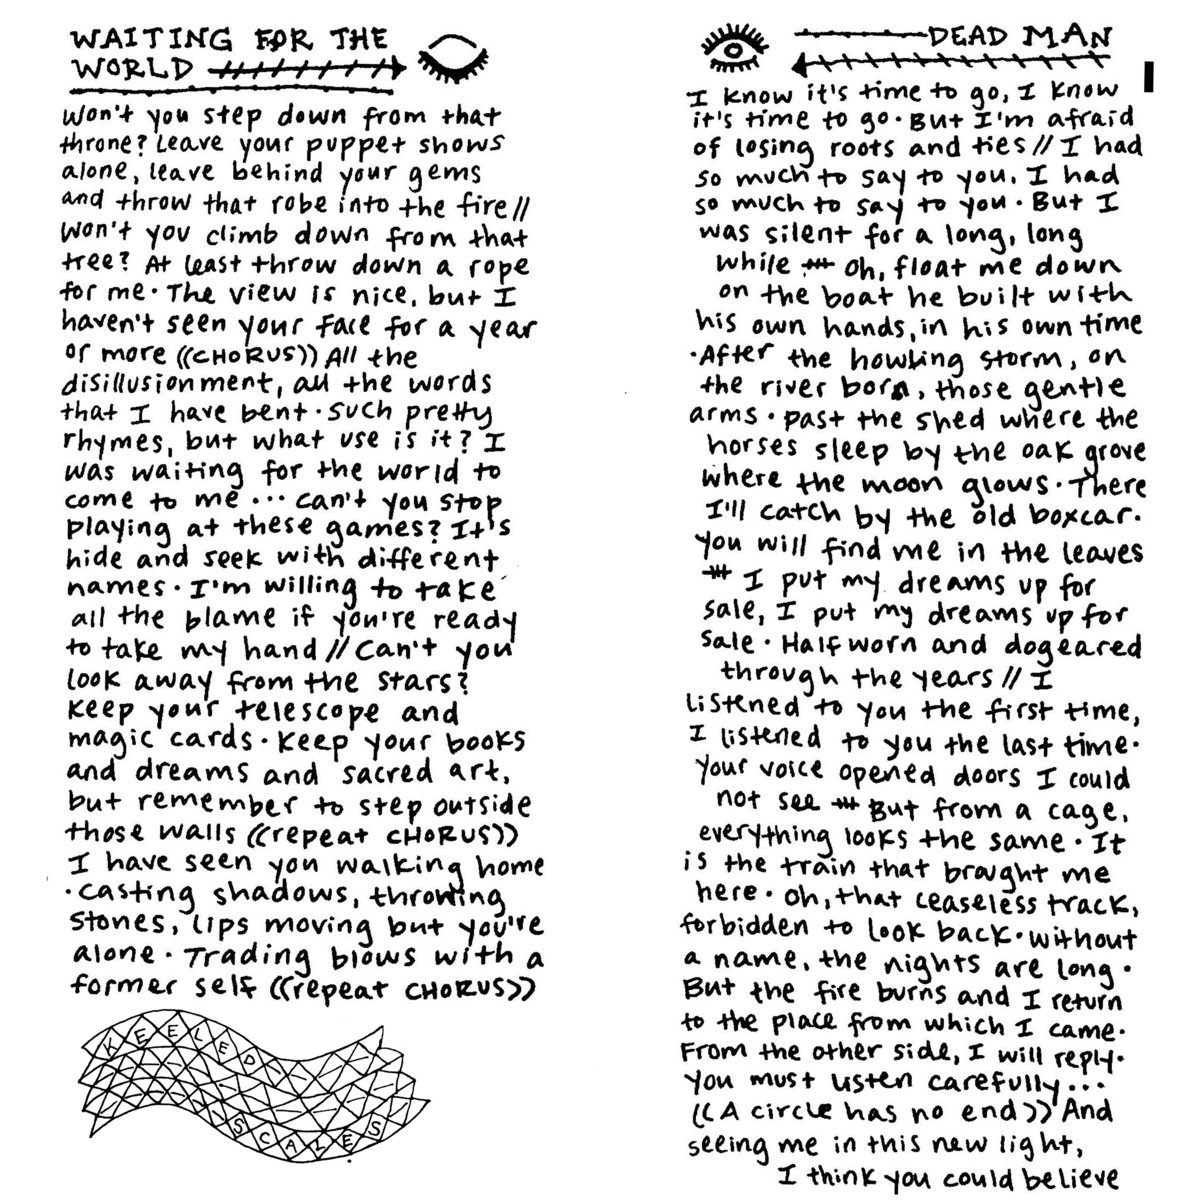 WAITING FOR THE
WORLD
Won't you step down from that
throne? Leave your puppet shows
alone, leave behind your gems
and throw that robe into the fire//
Won't you climb down from that
tree? At least throw down a rope
for me. The view is nice, but I
haven't seen your face for a year
or more ((CHORUS)) All the
disillusionment, all the words
that I have bent. Such pretty
rhymes, but what use is it? I
was waiting for the world to
come to me... Can't you stop
playing at these games? It's
hide and seek with different
names. I'm willing to take
all the blame if you're ready
to take my hand // Can't you
look away from the stars?
Keep your telescope and
magic cards. Keep your books
and dreams and sacred art,
but remember to step outside
those walls ((repeat CHORUS))
I have seen you walking home
. Casting shadows, throwing
stones, lips moving but you're
alone. Trading blows with a
former self ((repeat CHORUS))
KEELED
SCALES
DEAD MAN
I know it's time to go, I know
it's time to go. But I'm afraid
of losing roots and ties // I had
so much to say to you, I had
so much to say to you. But I
was silent for a long, long
while. Oh, float me down
on the boat he built with
his own hands, in his own time
. After the howling storm, on
the river born, those gentle
arms. Past the shed where the
horses sleep by the oak grove
where the moon glows. There
I'll catch by the old boxcar.
You will find me in the leaves
I put my dreams up for
sale, I put my dreams up for
sale. Half worn and dogeared
through the years // I
listened to you the first time,
I listened to you the last time.
Your voice opened doors I could
not see But from a cage,
everything looks the same. It
is the train that brought me
here. Oh, that ceaseless track,
forbidden to look back. Without
a name, the nights are long.
But the fire burns and I return
to the place from which I came.
From the other side, I will reply.
You must listen carefully...
((A circle has no end)) And
seeing me in this new light,
I think you could believe